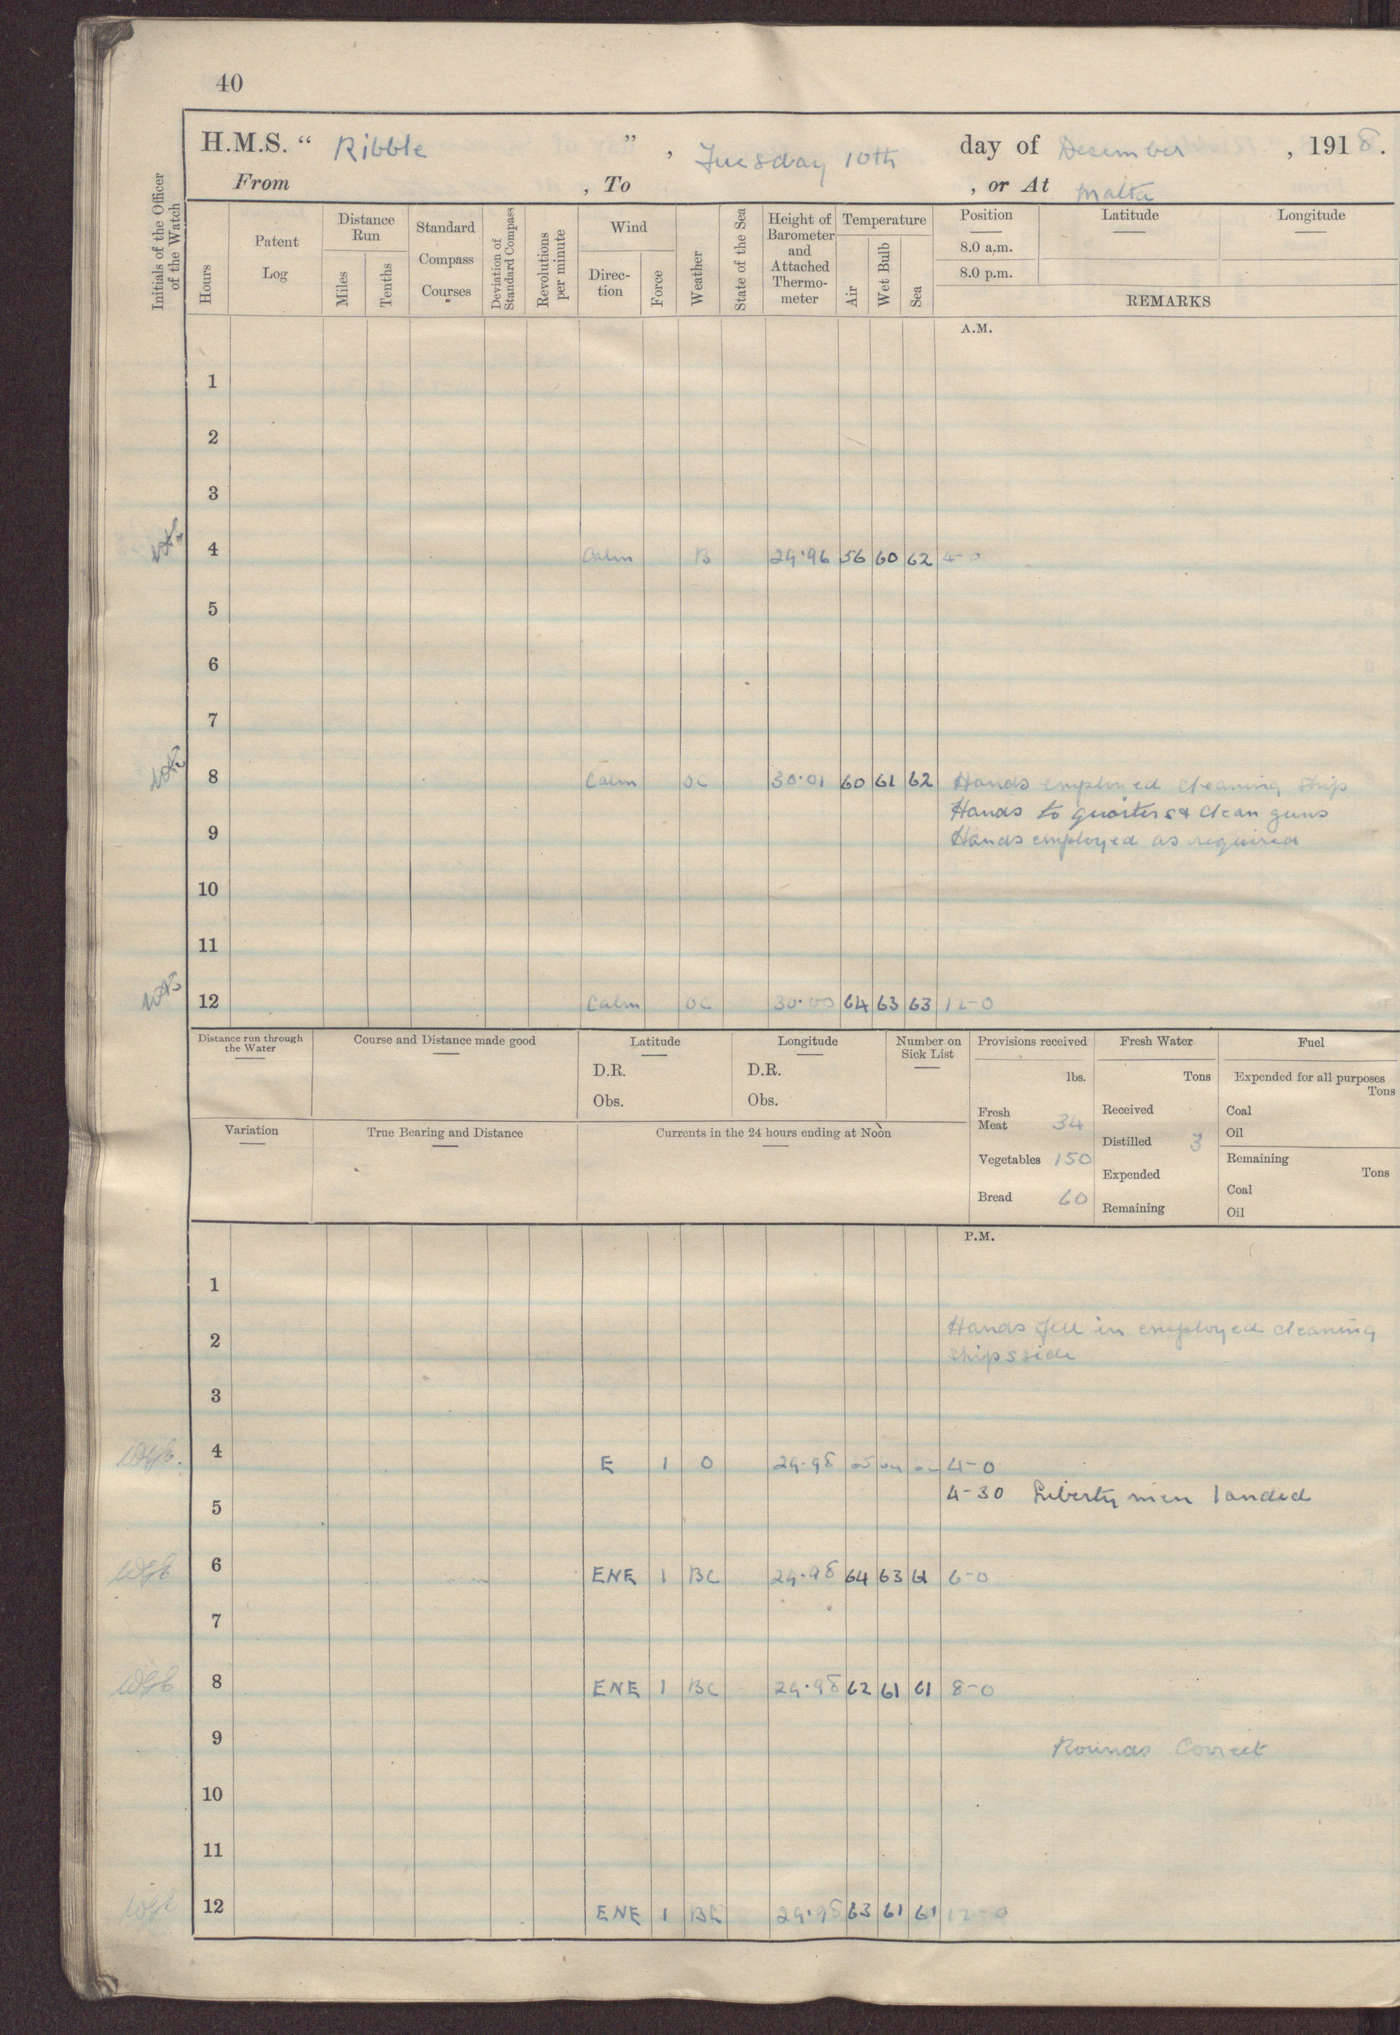 40
H.M.S. “ Ribble ” , Tuesday 10th day of Desember , 1918.
From , To , or At Malta
Initials of the Officer of the Watch
Hours
Patent Log
Distance Run
Miles
Tenths
Standard Compass Courses
Deviation of Standard Compass
Revolutions per minute
Wind
Direction
Force
Weather
State of the Sea
Height of Barometer and Attached Thermometer
Temperature
Air
Wet Bulb
Sea
Position Latitude Longitude
8.0 a.m.
8.0 p.m.
REMARKS
A.M.
1
2
3
4 Calm B 29·96 56 60 62 4-0
5
6
7
8 Calm OC 30·01 60 61 62 Hands employed cleaning ship
Hands to quarters & clean guns
9 Hands employed as required
10
11
12 Calm OC 30· 64 63 63 12-0
Distance run through the Water
Course and Distance made good
Latitude
D.R.
Obs.
Longitude
D.R.
Obs.
Number on Sick List
Provisions received
lbs.
Fresh Meat 34
Vegetables 150
Bread 60
Fresh Water
Tons
Received
Distilled 3
Expended
Remaining
Fuel
Expended for all purposes
Tons
Coal
Oil
Remaining
Tons
Coal
Oil
Variation
True Bearing and Distance
Currents in the 24 hours ending at Noon
P.M.
1
2 Hands fell in employed cleaning
ships side
3
4 E 1 O 29·98 4-0
4-30 Liberty men landed
5
6 ENE 1 BC 29·98 64 63 61 6-0
7
8 ENE 1 BC 29·98 62 61 61 8-0
9 Rounds Correct
10
11
12 ENE 1 BC 29·98 63 61 61 12-0